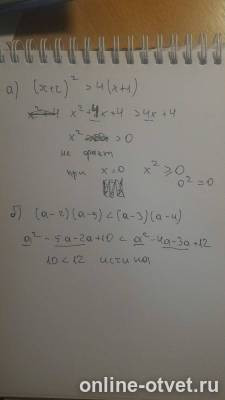 а) (x+2)² > 4(x+1)
x²+4x+4 > 4x+4
x² > 0
не факт
при x=0 x² ≥ 0
0² = 0
б) (a-2)(a-5) < (a-3)(a-4)
a² - 5a - 2a + 10 < a² - 4a - 3a + 12
10 < 12 истина
online-otvet.ru